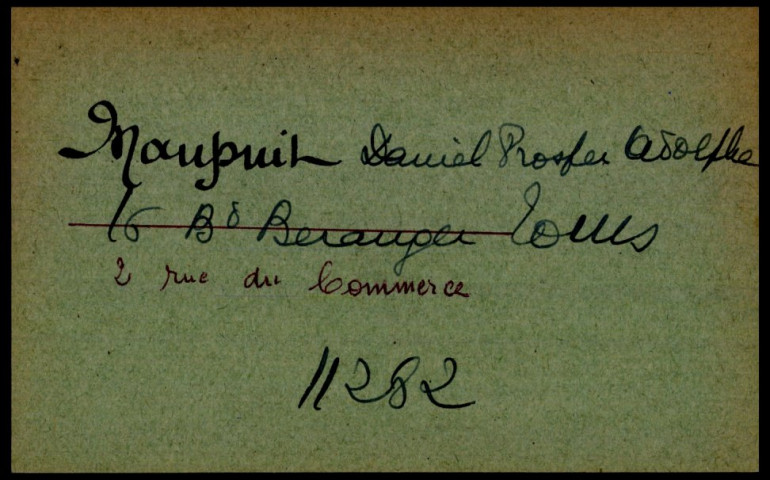 Maupuit Daniel Prosper Adolphe
16 Bd Beranger Tours
2 rue du Commerce
11282